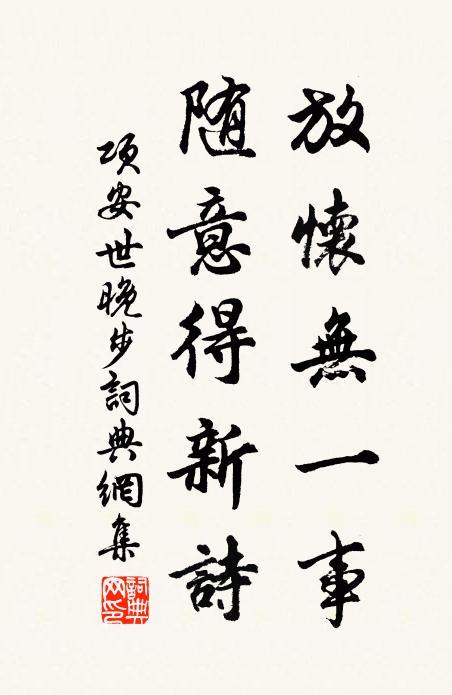 放懷無一事
随意得新詩
項安世晚步詞典網集
詞典網印